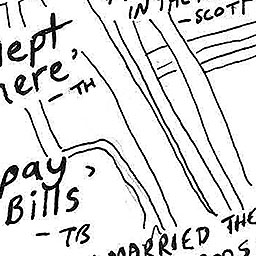 IN THE
- SCOTT
here,
- TH
pay,
Bills
- TB
MARRIED THE